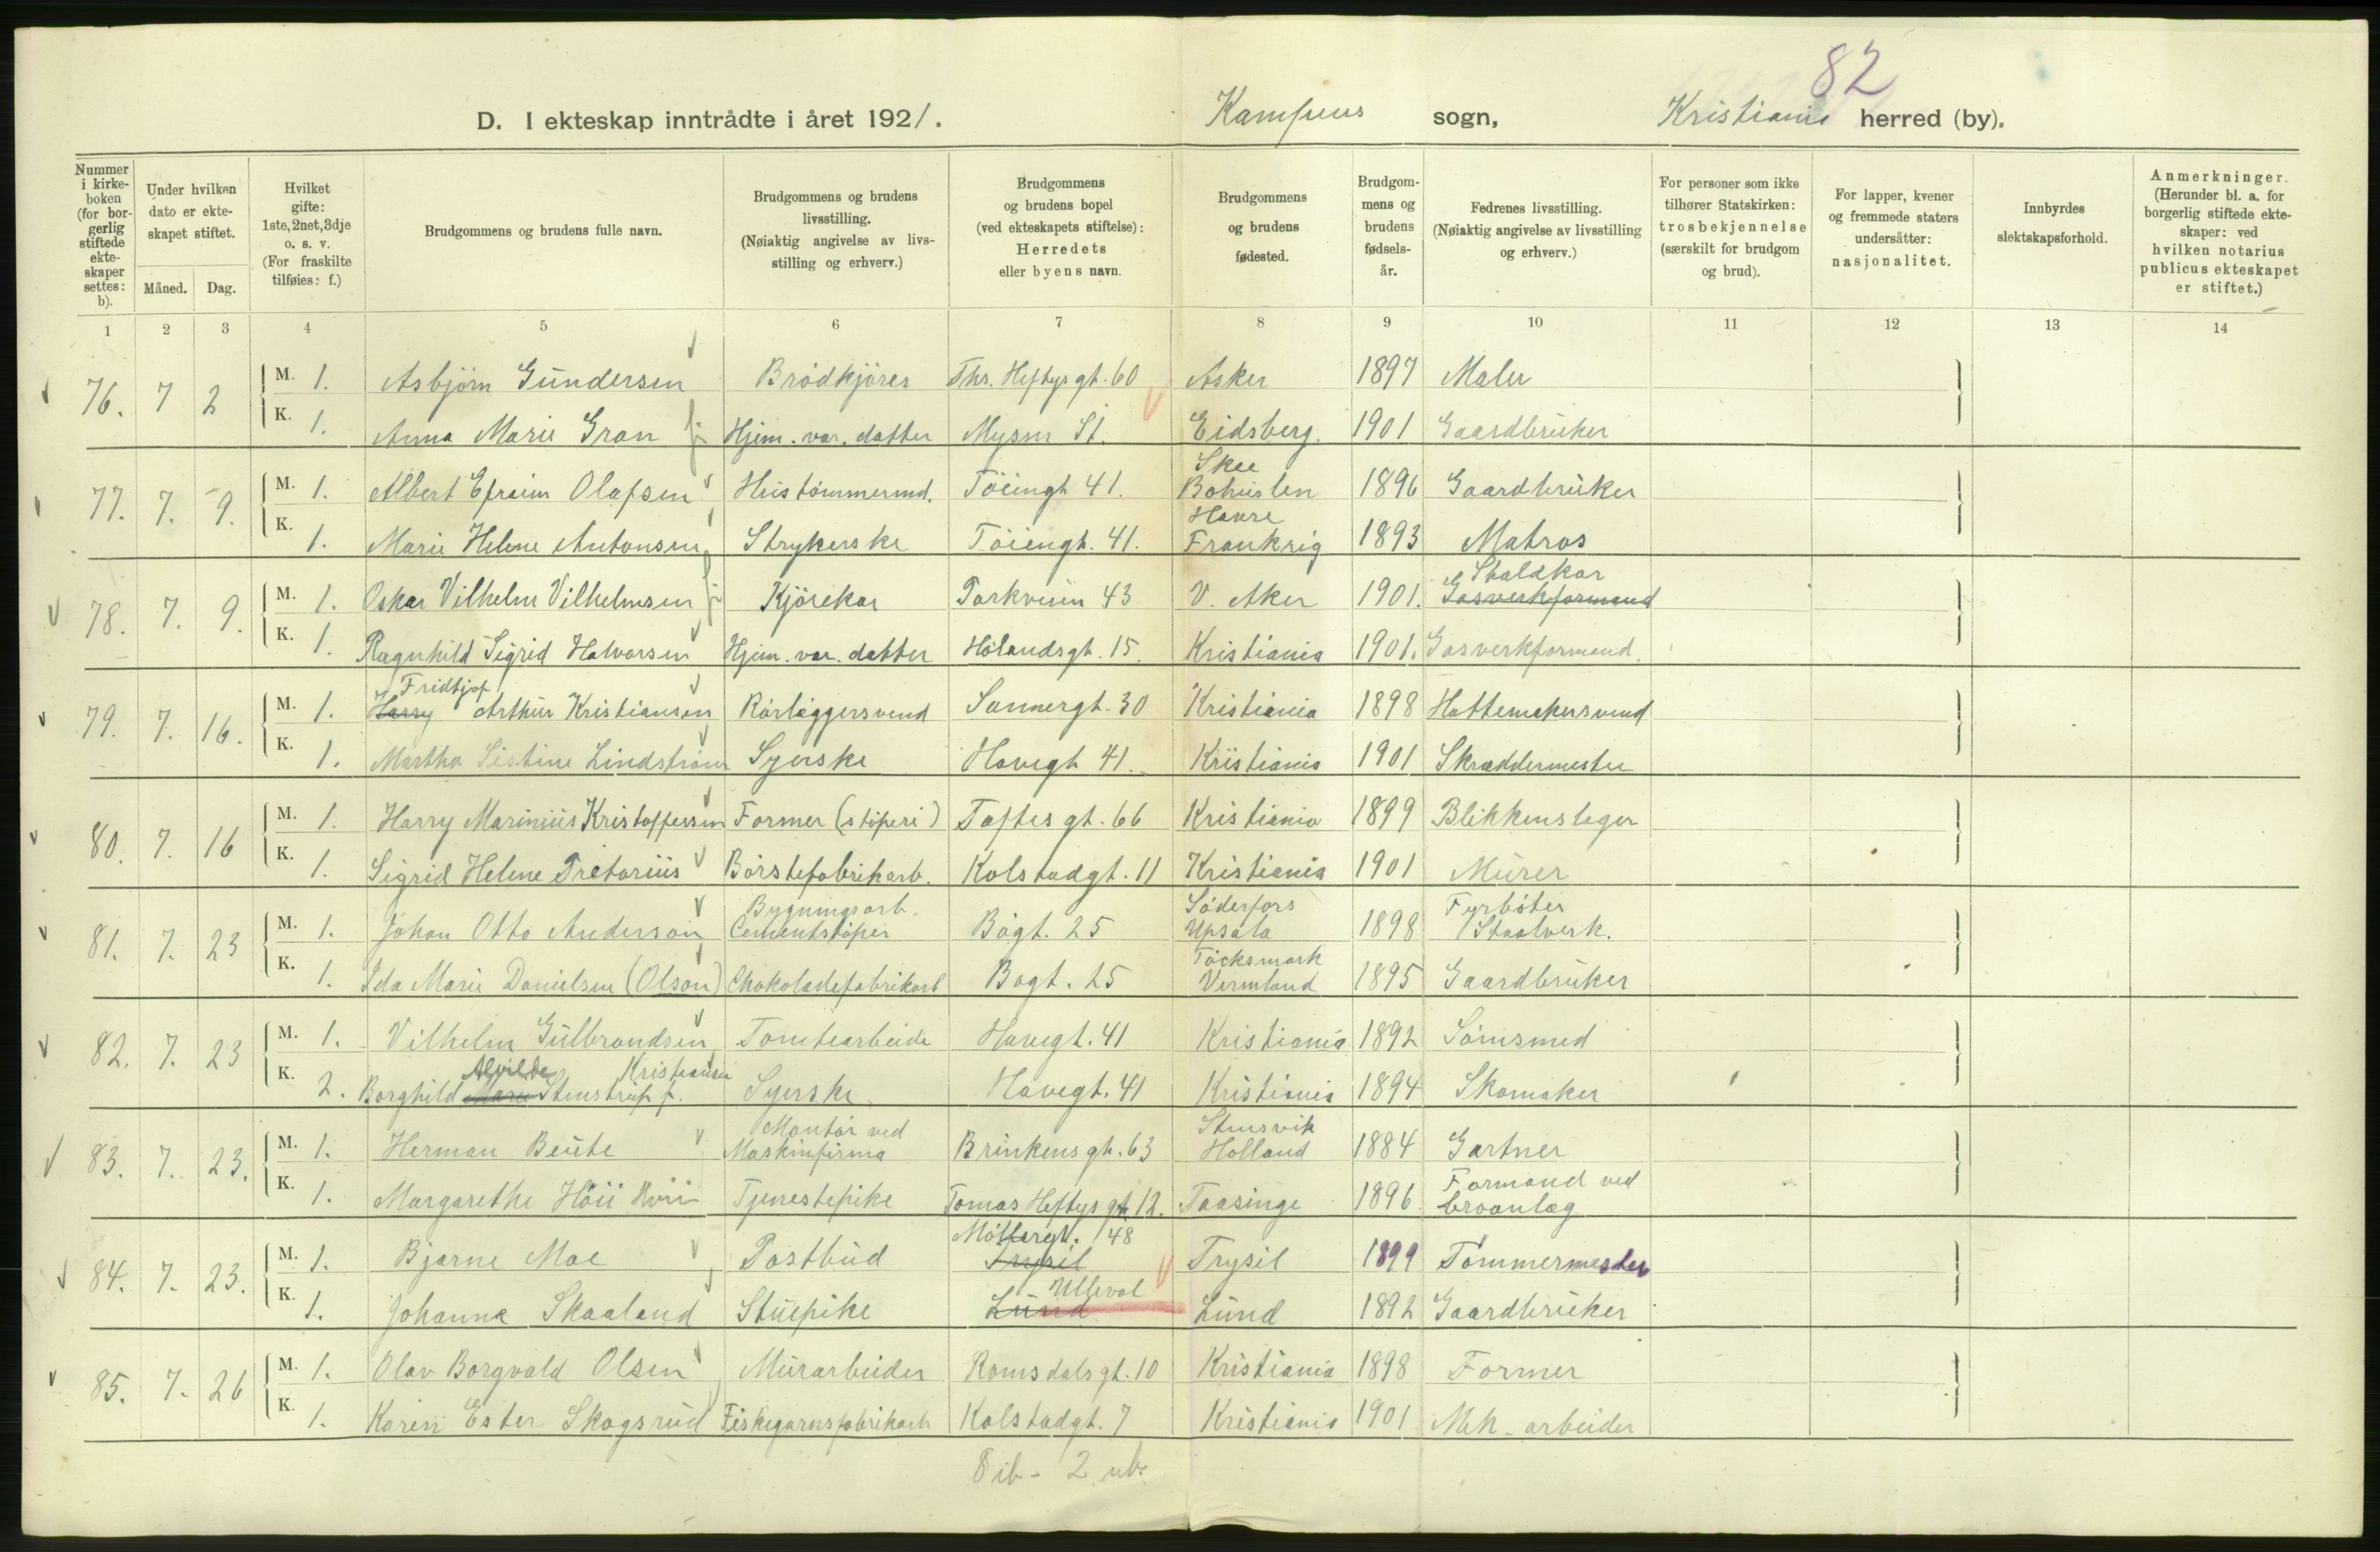 82
D. I ekteskap inntrådte i året 1921. Kampens sogn, Kristiania herred (by).
Nummer i kirke-boken (for bor-gerlig stiftede ekte-skaper settes: b).
Under hvilken dato er ekte-skapet stiftet.
Måned. Dag.
Hvilket gifte: 1ste, 2net, 3dje o. s. v. (For fraskilte tilføies: f.)
Brudgommens og brudens fulle navn.
Brudgommens og brudens livsstilling. (Nøiaktig angivelse av livs-stilling og erhverv.)
Brudgommens og brudens bopel (ved ekteskapets stiftelse): Herredets eller byens navn.
Brudgommens og brudens fødested.
Brudgom-mens og brudens fødsels-år.
Fedrenes livsstilling. (Nøiaktig angivelse av livsstilling og erhverv.)
For personer som ikke tilhører Statskirken: trosbekjennelse (særskilt for brudgom og brud).
For lapper, kvener og fremmede staters undersåtter: nasjonalitet.
Innbyrdes slektskapsforhold.
Anmerkninger. (Herunder bl. a. for borgerlig stiftede ekte-skaper: ved hvilken notarius publicus ekteskapet er stiftet.)
1 2 3 4 5 6 7 8 9 10 11 12 13 14
76. 7 2 M. 1. Asbjörn Gundersen Brödkjörer Thr. Heftys gt. 60 Asker 1897 Maler
K. 1. Anna Marie Gran Hjem. vær. datter Mysen St. Eidsberg. 1901 Gaardbruker
77. 7. 9. M. 1. Albert Efraim Olafsen Hustömmermd. Töiengt 41. Skee Bohuslen 1896 Gaardbruker
K. 1. Marie Helene Antonsen Strykerske Töiengt. 41. Havre Frankrig 1893 Matros
78. 7. 9. M. 1. Oskar Vilhelm Vilhelmsen Kjörekar Parkveien 43 V. Aker 1901. Staldkar Gasverkformand
K. 1. Ragnhild Sigrid Halvorsen Hjem. vær. datter Hölandsgt. 15. Kristiania 1901. Gasverkformand.
79. 7. 16. M. 1. Fridtjof Harry Arthur Kristiansen Rörlæggersvend Sannergt. 30 Kristiania 1898 Hattemakersvend
K. 1. Martha Sistine Lindström Syerske Havegt 41. Kristiania 1901 Skræddermester
80. 7. 16 M. 1. Harry Marinius Kristoffersen Former (støperi) Toftes gt. 66 Kristiania 1899 Blikkenslager
K. 1. Sigrid Helene Pretorius Börstefabrikarb. Kolstadgt. 11 Kristiania 1901 Murer
81. 7. 23 M. 1. Johan Otto Anderson Bygningsarb. Cementstöper Bögt. 25 Söderfors Upsala 1898 Fyrböter Staalverk.
K. 1. Ida Marie Danielsen (Olson) Chokoladefabrikarb Bøgt. 25 Töcksmark Vermland 1895 Gaardbruker
82. 7. 23 M. 1. Vilhelm Gulbrandsen Tomtearbeide Havegt. 41 Kristiania 1892 Sömsmed
K. 2. Borghild Alvilde Marie Stenstrup f. Kristiansen Syerske Havegt. 41 Kristiania 1894 Skomaker
83. 7. 23. M. 1. Herman Beute Montör ved Maskinfirma Brinkens gt. 63 Stensvik Holland 1884 Gartner
K. 1. Margarethe Höii Tjenestepike Tomas Heftys gt. 12. Taasinge 1896 Formand ved broanlæg
84. 7. 23. M. 1. Bjarne Moe Postbud Möllergt. 48 Trysil Trysil 1899 Tömmermester
K. 1. Johanna Skaaland Stuepike Ulleval Lund Lund 1892 Gaardbruker
85. 7. 26 M. 1. Olav Borgvald Olsen Murarbeider Romsdals gt. 10 Kristiania 1898 Former
K. 1. Karen Ester Skogsrud Fiskegarnsfabrikarb Kolstadgt. 7 Kristiania 1901 Mek. arbeider
8 ib - 2 ub.